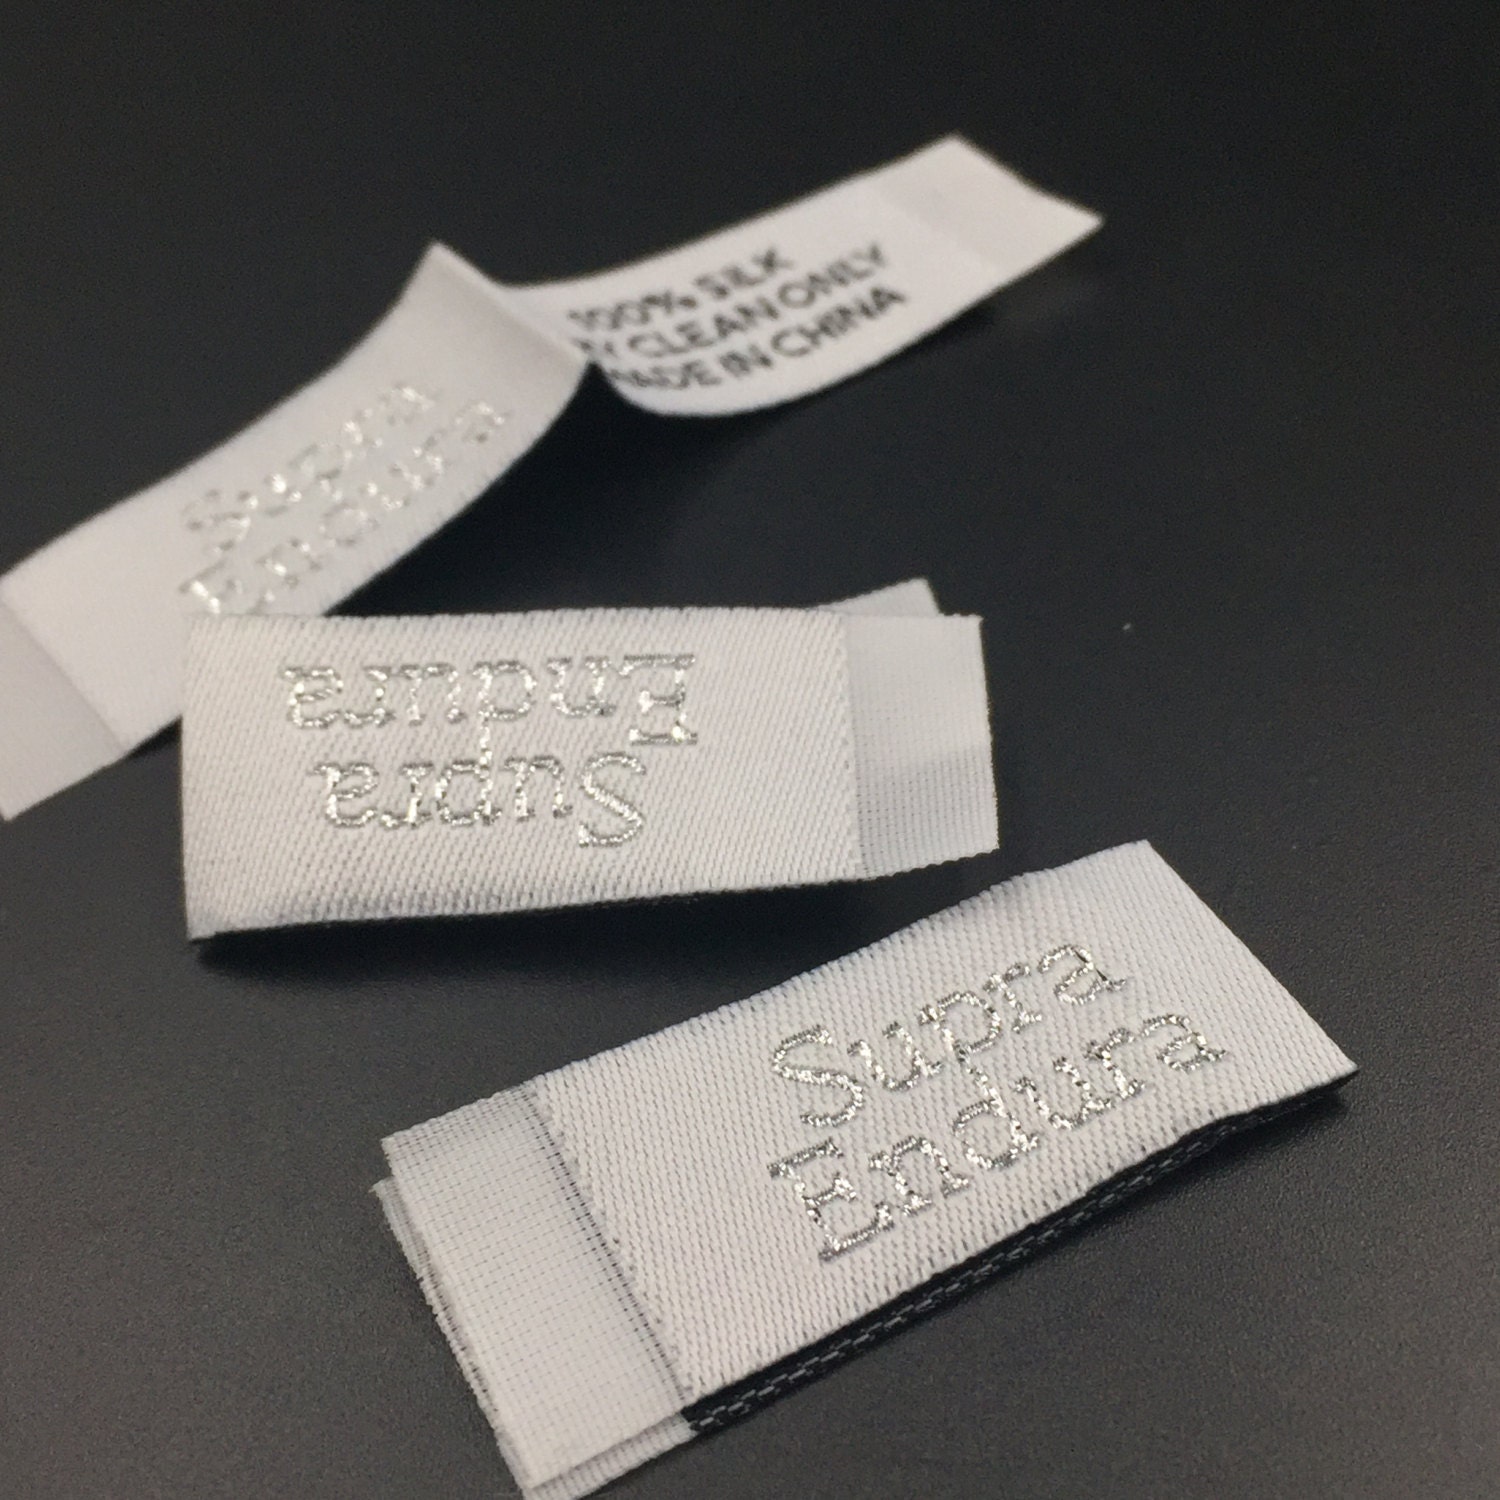 100% SILK
CLEAN ONLY
MADE IN CHINA
Supra
Endura
Supra
Endura
Supra
Endura